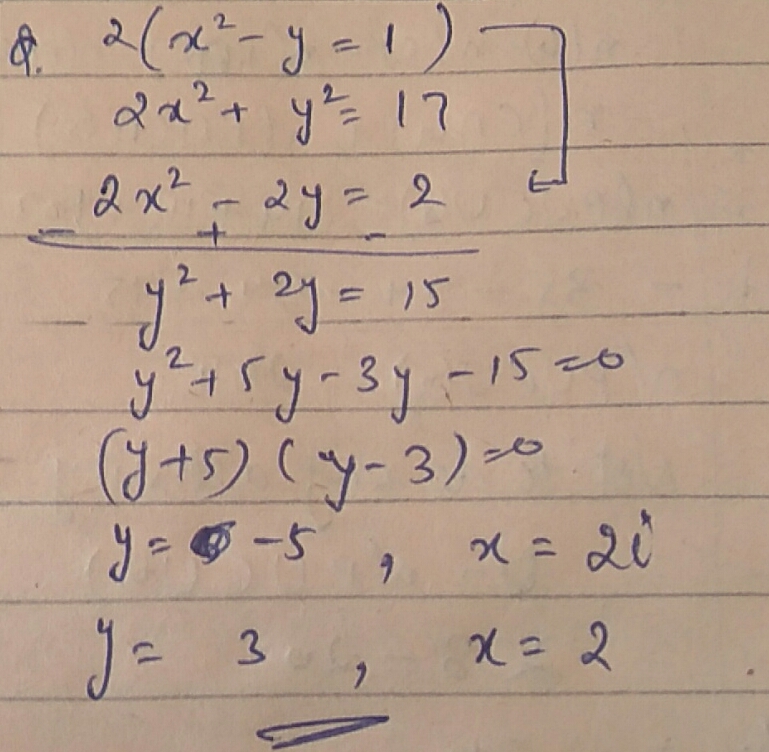 Q. 2(x² - y = 1)
2x² + y² = 17
2x² - 2y = 2
- + -
y² + 2y = 15
y² + 5y - 3y - 15 = 0
(y+5) (y-3) = 0
y = -5 , x = 2i
y = 3 , x = 2